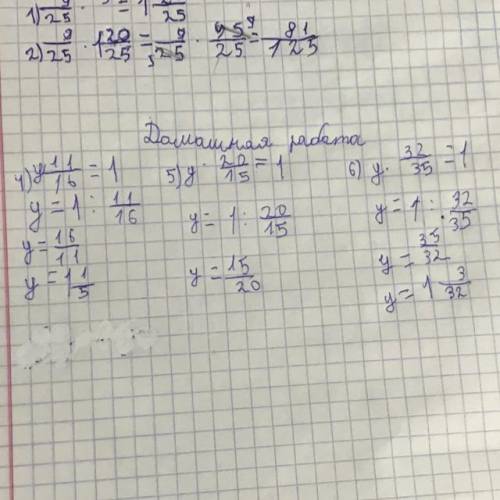 2) 9/25 · 1 20/25 = 9/25 · 45/25 = 81/125
Домашная работа
4) y 11/16 = 1
y = 1 : 11/16
y = 16/11
y = 1 1/5
5) y · 20/15 = 1
y = 1 : 20/15
y = 15/20
6) y · 32/35 = 1
y = 1 : 32/35
y = 35/32
y = 1 3/32